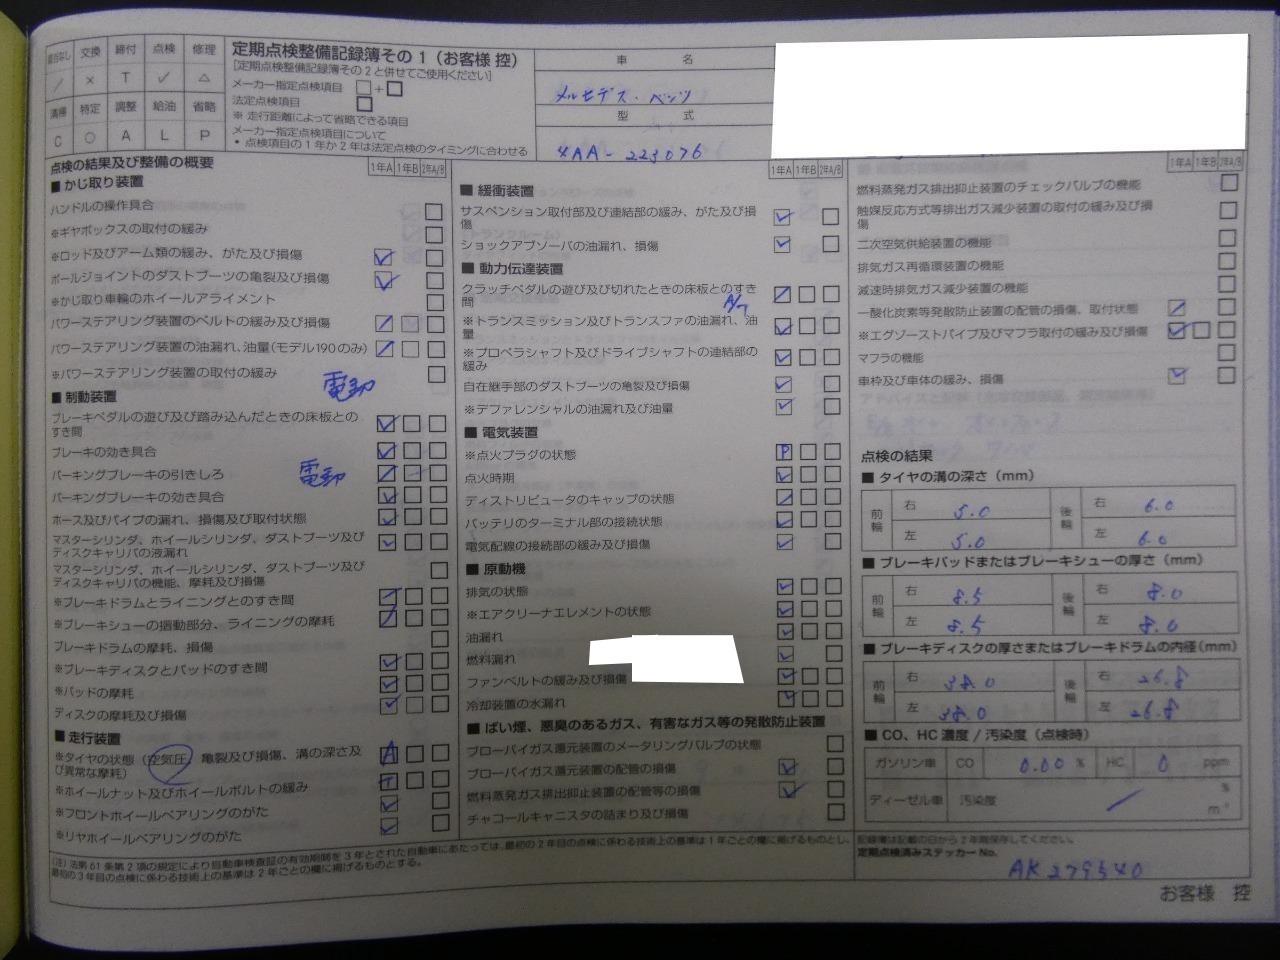 該当なし 交換 締付 点検 修理
/ × T ✓ △
清掃 特定 調整 給油 省略
C ○ A L P
定期点検整備記録簿その1（お客様 控）
[定期点検整備記録簿その2と併せてご使用ください]
メーカー指定点検項目 □+□
法定点検項目 □
※ 走行距離によって省略できる項目
メーカー指定点検項目について
• 点検項目の1年か2年は法定点検のタイミングに合わせる
車 名
メルセデス・ベンツ
型 式
4AA-223076
点検の結果及び整備の概要
1年A 1年B 2年A/B
■ かじ取り装置
ハンドルの操作具合
※ギヤボックスの取付の緩み
※ロッド及びアーム類の緩み、がた及び損傷 ✓
ボールジョイントのダストブーツの亀裂及び損傷 ✓
※かじ取り車輪のホイールアライメント
パワーステアリング装置のベルトの緩み及び損傷 /
パワーステアリング装置の油漏れ、油量（モデル190のみ） /
※パワーステアリング装置の取付の緩み
電動
■ 制動装置
ブレーキペダルの遊び及び踏み込んだときの床板との
すき間 ✓
ブレーキの効き具合 ✓
パーキングブレーキの引きしろ 電動 /
パーキングブレーキの効き具合 ✓
ホース及びパイプの漏れ、損傷及び取付状態 ✓
マスターシリンダ、ホイールシリンダ、ダストブーツ及び
ディスクキャリパの液漏れ ✓
マスターシリンダ、ホイールシリンダ、ダストブーツ及び
ディスクキャリパの機能、摩耗及び損傷
※ブレーキドラムとライニングとのすき間 /
※ブレーキシューの摺動部分、ライニングの摩耗 /
ブレーキドラムの摩耗、損傷
※ブレーキディスクとパッドのすき間 ✓
※パッドの摩耗 ✓
ディスクの摩耗及び損傷 ✓
■ 走行装置
※タイヤの状態（空気圧、亀裂及び損傷、溝の深さ及
び異常な摩耗） A
※ホイールナット及びホイールボルトの緩み T
※フロントホイールベアリングのがた ✓
※リヤホイールベアリングのがた ✓
（注）法第61条第2項の規定により自動車検査証の有効期間を3年とされた自動車にあたっては、最初の2年目の点検に係わる技術上の基準は1年ごとの欄に掲げるものとし、
最初の3年目の点検に係わる技術上の基準は2年ごとの欄に掲げるものとする。
1年A 1年B 2年A/B
■ 緩衝装置
サスペンション取付部及び連結部の緩み、がた及び損
傷 ✓
ショックアブソーバの油漏れ、損傷 ✓
■ 動力伝達装置
クラッチペダルの遊び及び切れたときの床板とのすき
間 /
A/T
※トランスミッション及びトランスファの油漏れ、油
量 ✓
※プロペラシャフト及びドライブシャフトの連結部の
緩み ✓
自在継手部のダストブーツの亀裂及び損傷 ✓
※デファレンシャルの油漏れ及び油量 ✓
■ 電気装置
※点火プラグの状態 P
点火時期 ✓
ディストリビュータのキャップの状態 /
バッテリのターミナル部の接続状態 ✓
電気配線の接続部の緩み及び損傷 ✓
■ 原動機
排気の状態 ✓
※エアクリーナエレメントの状態 ✓
油漏れ ✓
燃料漏れ ✓
ファンベルトの緩み及び損傷 ✓
冷却装置の水漏れ ✓
■ ばい煙、悪臭のあるガス、有害なガス等の発散防止装置
ブローバイガス還元装置のメータリングバルブの状態
ブローバイガス還元装置の配管の損傷 ✓
燃料蒸発ガス排出抑止装置の配管等の損傷 ✓
チャコールキャニスタの詰まり及び損傷
1年A 1年B 2年A/B
燃料蒸発ガス排出抑止装置のチェックバルブの機能
触媒反応方式等排出ガス減少装置の取付の緩み及び損
傷
二次空気供給装置の機能
排気ガス再循環装置の機能
減速時排気ガス減少装置の機能
一酸化炭素等発散防止装置の配管の損傷、取付状態 /
※エグゾーストパイプ及びマフラ取付の緩み及び損傷 ✓
マフラの機能
車枠及び車体の緩み、損傷 ✓
点検の結果
■ タイヤの溝の深さ（mm）
前輪 右 5.0 後輪 右 6.0
左 5.0 左 6.0
■ ブレーキパッドまたはブレーキシューの厚さ（mm）
前輪 右 8.5 後輪 右 8.0
左 8.5 左 8.0
■ ブレーキディスクの厚さまたはブレーキドラムの内径（mm）
前輪 右 38.0 後輪 右 26.8
左 38.0 左 26.8
■ CO、HC 濃度 / 汚染度（点検時）
ガソリン車 CO 0.00 % HC 0 ppm
ディーゼル車 汚染度 / %
m⁻¹
記録簿は記載の日から2年間保存してください。
定期点検済みステッカー No.
AK279340
お客様 控